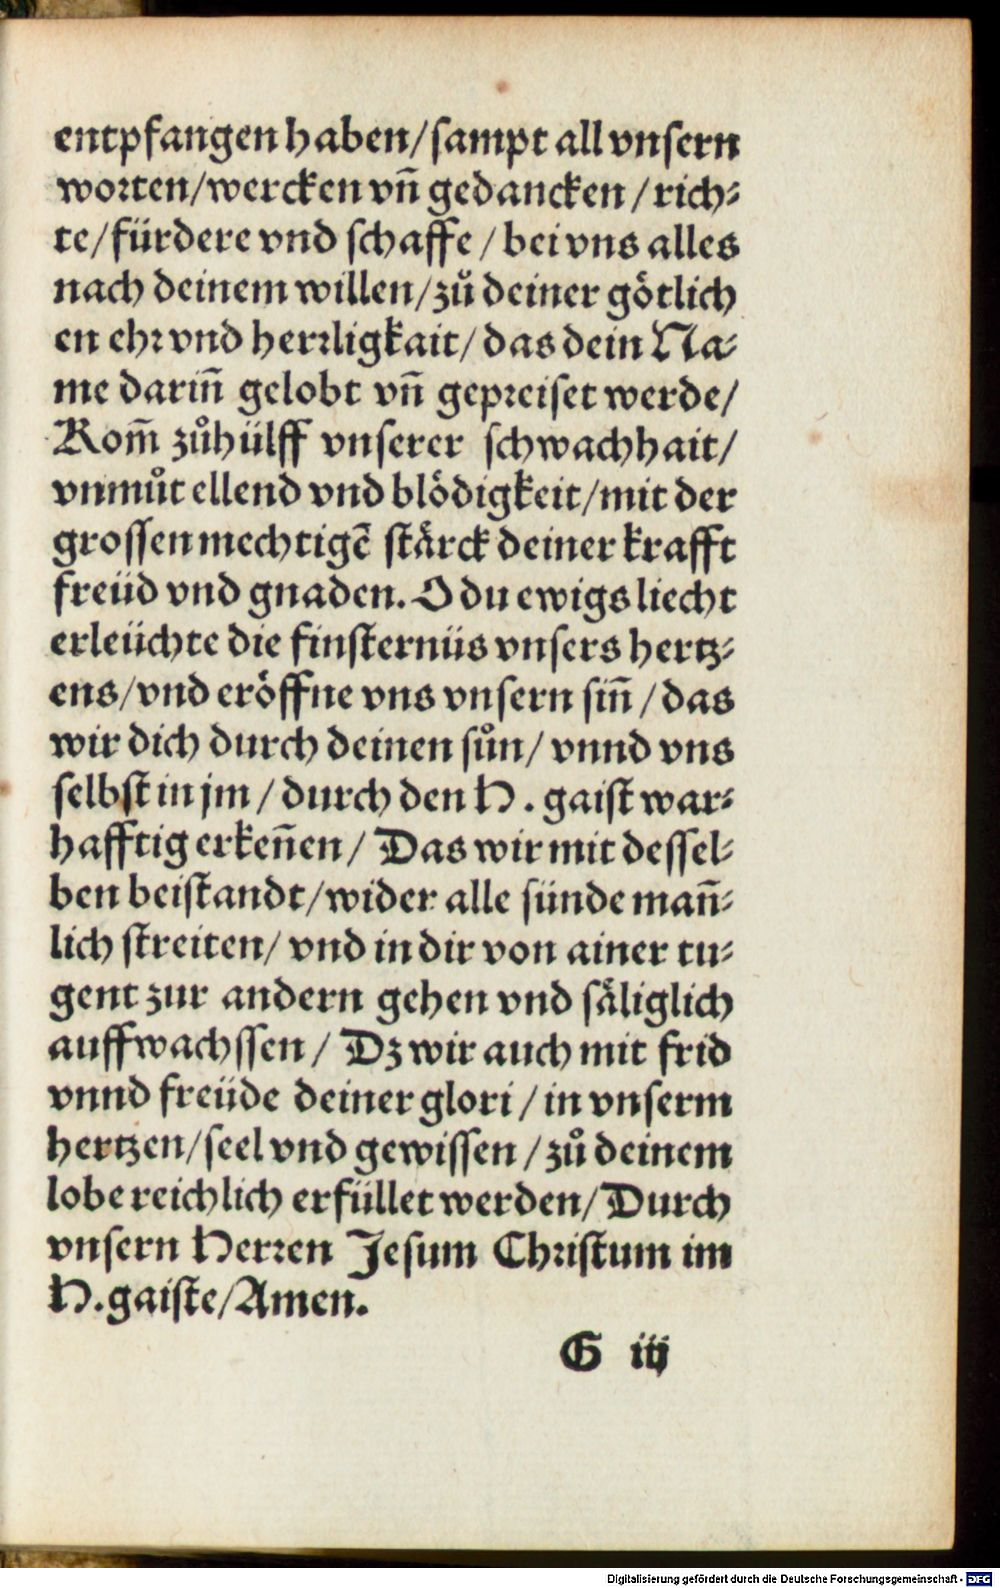 entpfangen haben/sampt all vnsern
worten/wercken vñ gedancken/rich⸗
te/fürdere vnd schaffe/bei vns alles
nach deinem willen/zů deiner götlich
en ehr vnd herrligkait/das dein Na⸗
me dariñ gelobt vñ gepreiset werde/
Kom̃ zůhülff vnserer schwachhait/
vnmůt ellend vnd blödigkeit/mit der
grossen mechtigẽ stärck deiner krafft
freüd vnd gnaden. O du ewigs liecht
erleüchte die finsternüs vnsers hertz⸗
ens/vnd eröffne vns vnsern siñ/das
wir dich durch deinen sůn/vnnd vns
selbst in jm/durch den H. gaist war⸗
hafftig erkeñen/Das wir mit dessel⸗
ben beistandt/wider alle sünde mañ⸗
lich streiten/vnd in dir von ainer tu⸗
gent zur andern gehen vnd säliglich
auffwachssen/Dz wir auch mit frid
vnnd freüde deiner glori/in vnserm
hertzen/seel vnd gewissen/zů deinem
lobe reichlich erfüllet werden/Durch
vnsern Herren Jesum Christum im
H.gaiste/Amen.
G iij
Digitalisierung gefördert durch die Deutsche Forschungsgemeinschaft - DFG